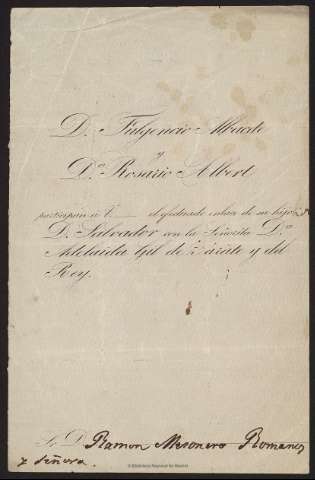 D. Fulgencio Albacete
y
D.ª Rosario Albert
participan á V. el efectuado enlace de su hijo
D. Salvador con la Señorita D.ª
Adelaida Gil de Zárate y del
Rey.
S. D. Ramon Mesonero Romanos
y Señora.